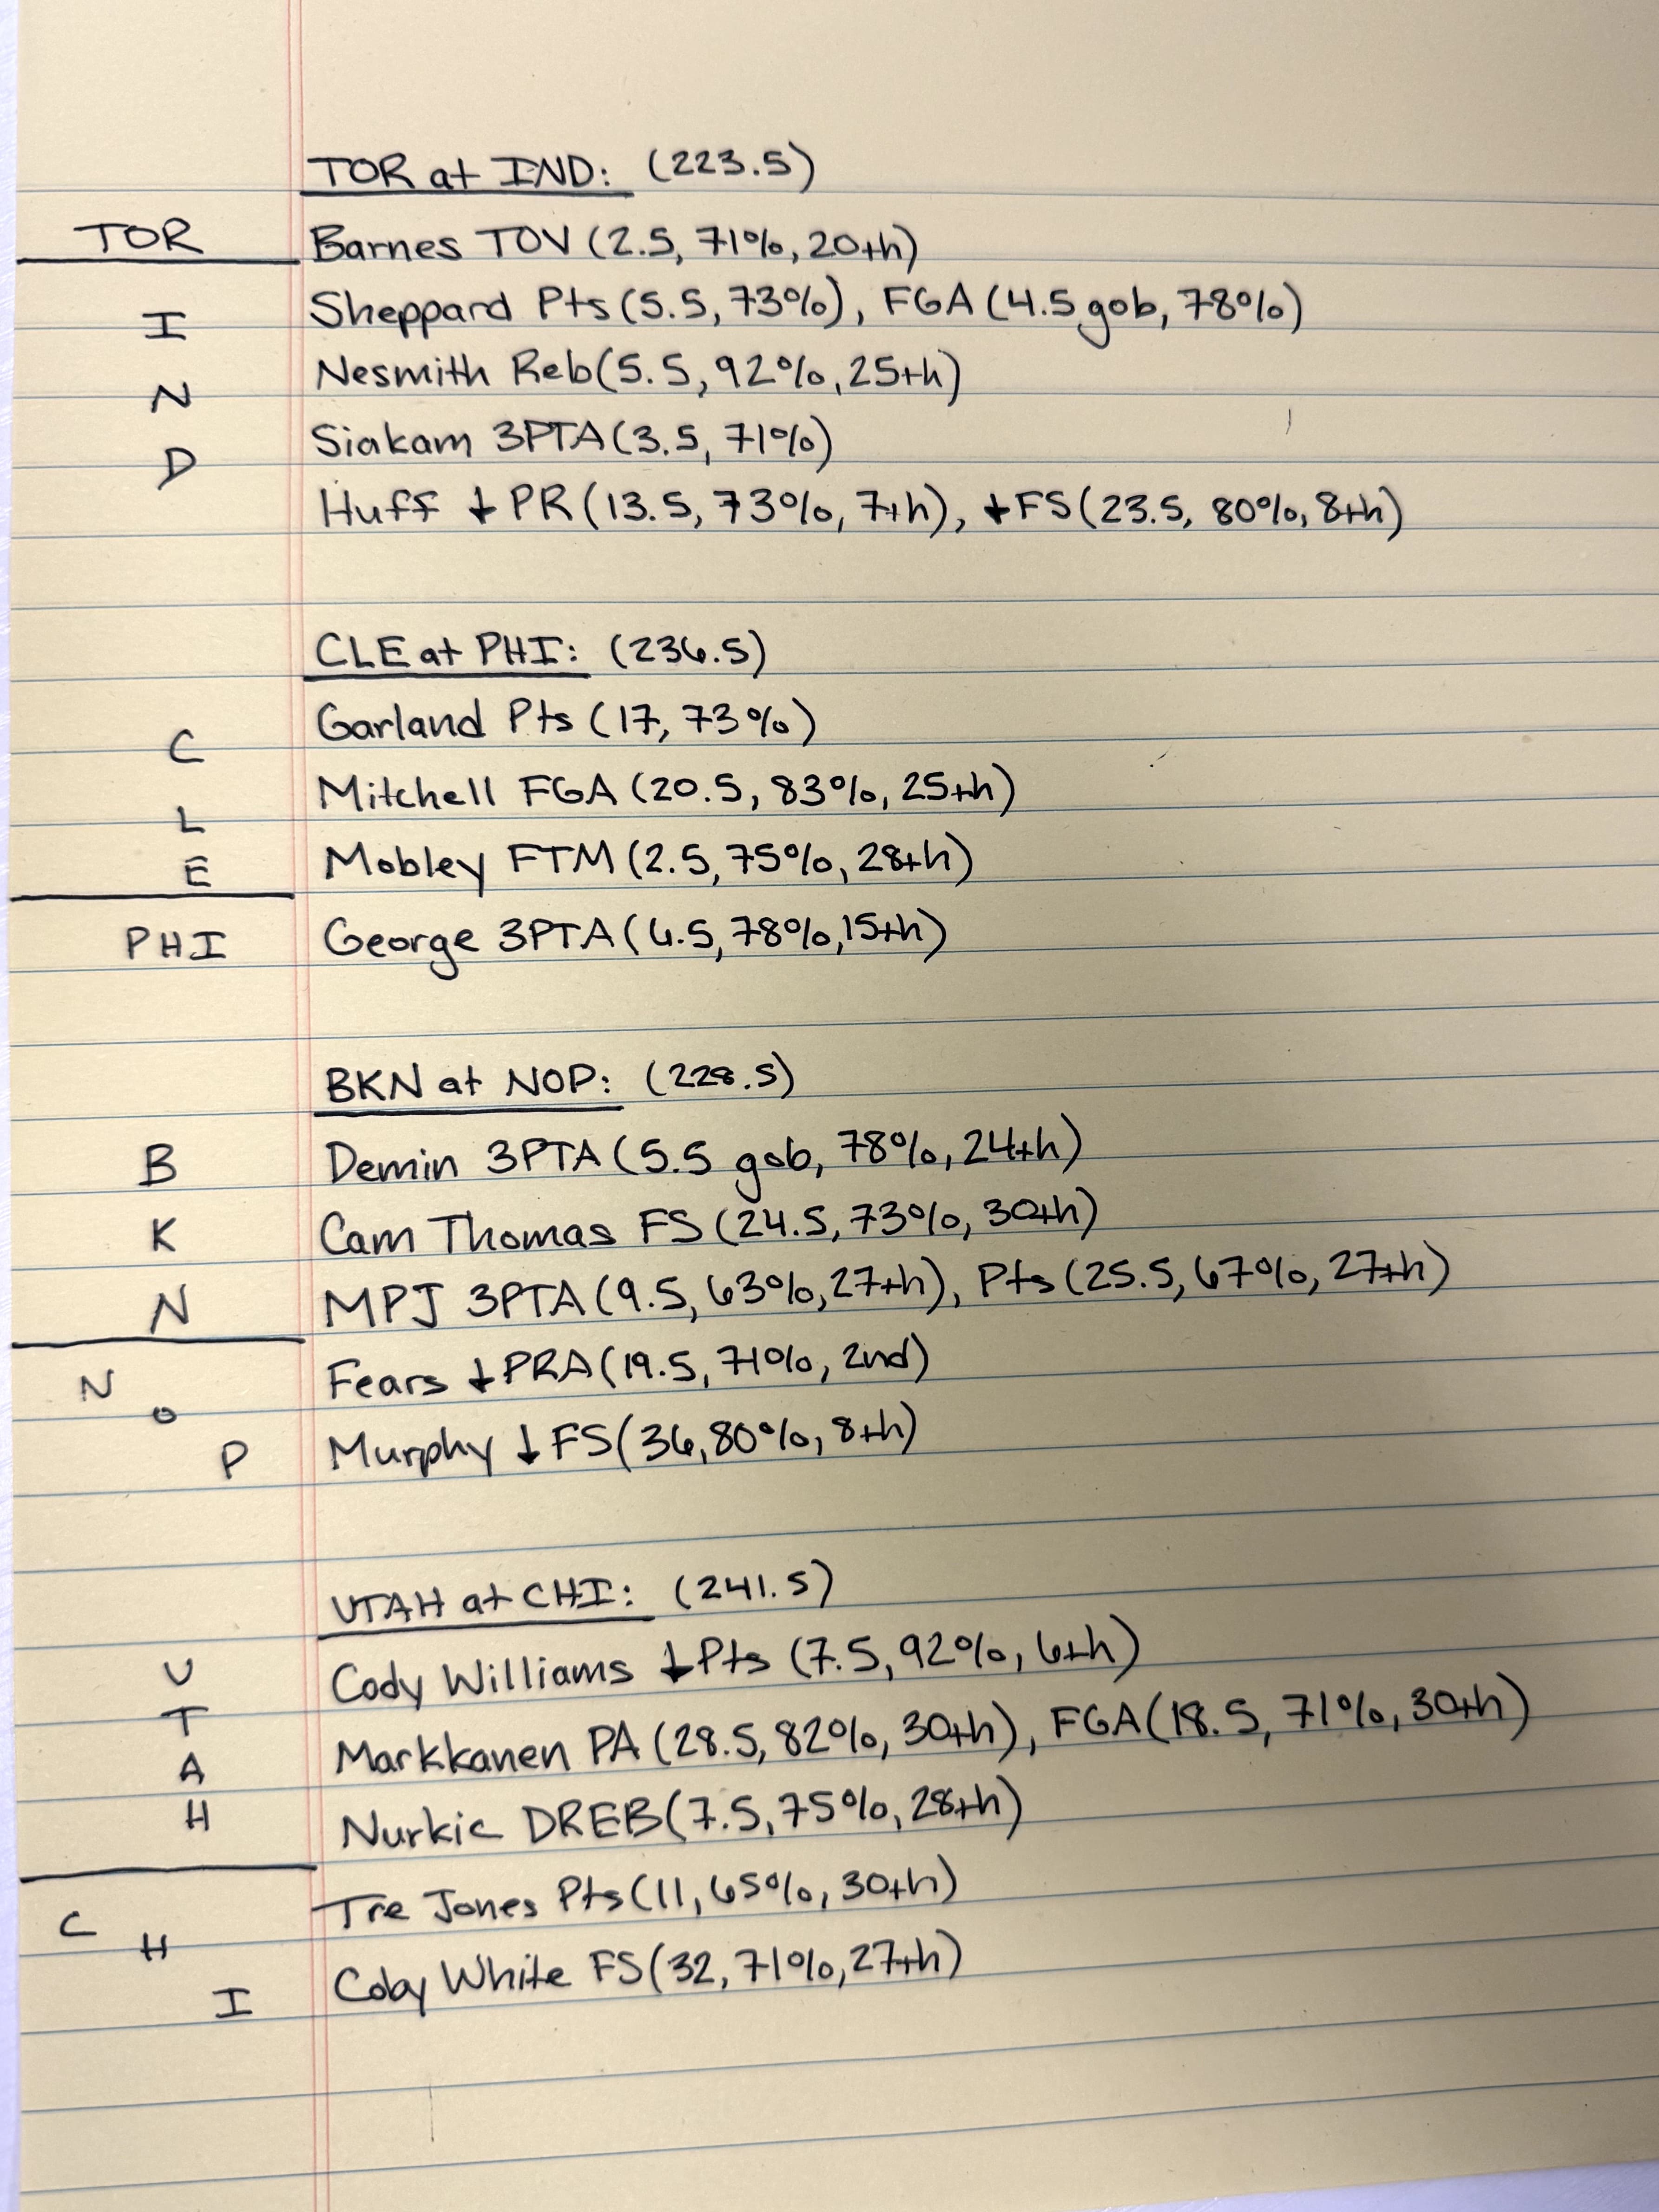 TOR at IND: (223.5)
TOR Barnes TOV (2.5, 71%, 20th)
I Sheppard Pts (5.5, 73%), FGA (4.5 gob, 78%)
N Nesmith Reb (5.5, 92%, 25th)
D Siakam 3PTA (3.5, 71%)
Huff ↓ PR (13.5, 73%, 7th), ↓FS (23.5, 80%, 8th)
CLE at PHI: (236.5)
C Garland Pts (17, 73%)
L Mitchell FGA (20.5, 83%, 25th)
E Mobley FTM (2.5, 75%, 28th)
PHI George 3PTA (6.5, 78%, 15th)
BKN at NOP: (228.5)
B Demin 3PTA (5.5 gob, 78%, 24th)
K Cam Thomas FS (24.5, 73%, 30th)
N MPJ 3PTA (9.5, 63%, 27th), Pts (25.5, 67%, 27th)
N Fears ↓PRA (19.5, 71%, 2nd)
O
P Murphy ↓ FS (36, 80%, 8th)
UTAH at CHI: (241.5)
U Cody Williams ↓Pts (7.5, 92%, 6th)
T
A Markkanen PA (28.5, 82%, 30th), FGA (18.5, 71%, 30th)
H Nurkic DREB (7.5, 75%, 28th)
C Tre Jones Pts (11, 65%, 30th)
H
I Coby White FS (32, 71%, 27th)